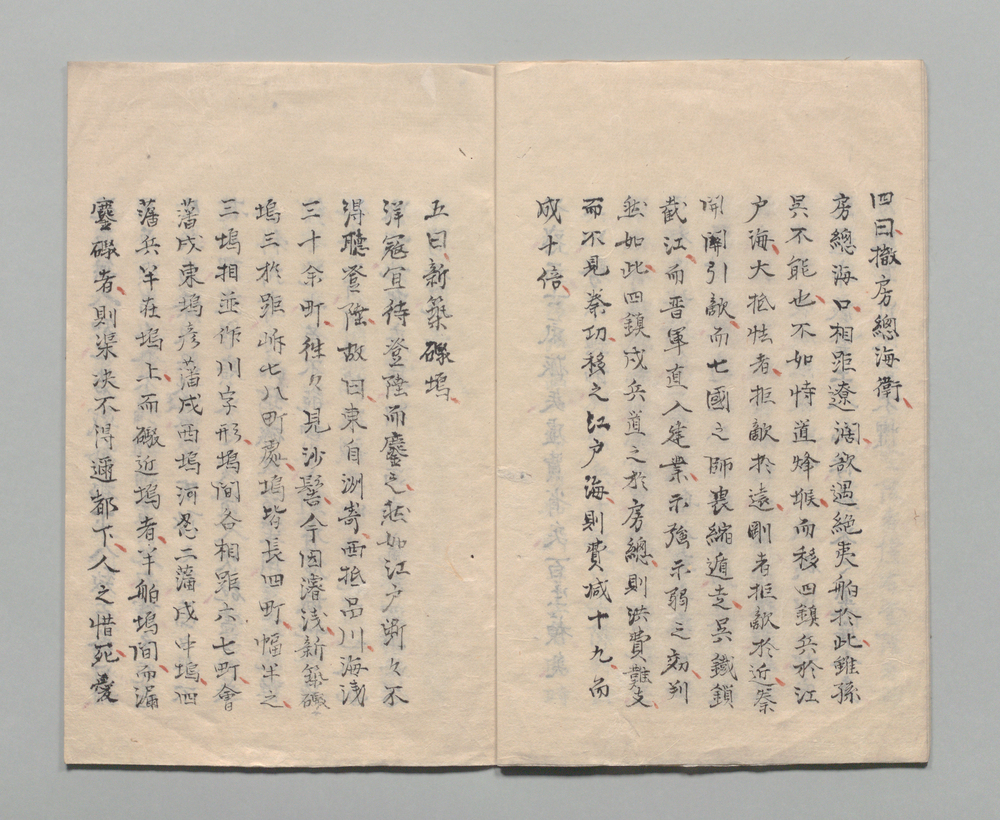 四曰撤房總海衛
房總海口相距遼濶欲遏絶夷舶於此雖孫
吳不能也不如恃道烽堠而移四鎮兵於江
户海大抵怯者拒敵於遠剛者拒敵於近秦
開關引敵而七國之師畏縮遁走吳鐵鎖
截江而晋軍直入建業示強示弱之効判
然如此四鎮戍兵道之於房總則洪費難支
而不見寸功移之江户海則費減十九而
成十倍
五曰新築礮塢
洋冦宜待登陸而鏖之然如江户断々不
得聽登陸故曰東自洲嵜西抵品川海浅
三十余町徃々見沙髻今因濬浅新築礮
塢三於距岸七八町處塢皆長四町幅半之
三塢相並作川字形塢间各相距六七町會
藩戍東塢彦藩戍西塢河忍二藩戍中塢四
藩兵半在塢上而礮近塢者半舶塢间而漏
塞礮者則渠决不得逼都下人之惜死愛